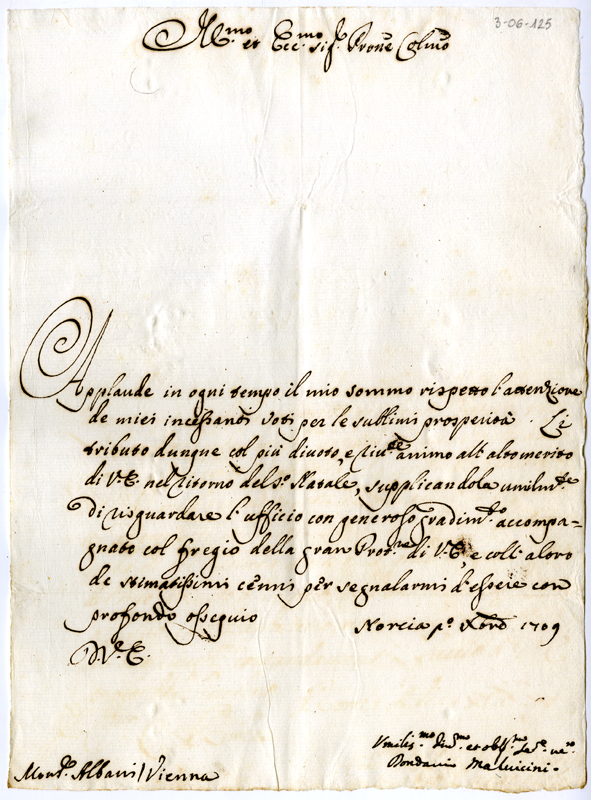 3-06-125
Ill.mo et Ecc.mo Sig.r Prone Colmo
Applaude in ogni tempo il mio sommo rispetto l'attenzione
de miei incessanti voti per le sublimi prosperità. Le
tributo dunque col più divoto, e animo all'alto merito
di V.E. nel ritorno del S.o Natale, supplicandola umilm.te
di risguardare l'ufficio con generoso gradim.to accompa=
gnato col fregio della gran Prot.ne di V.E., e coll'
de stimatissimi cenni per segnalarmi d'essere con
profondo ossequio Norcia p.o Xbre 1709
D.V.E.
Mons.r Albani / Vienna
Umilis.mo et obl.mo
Maluicini.